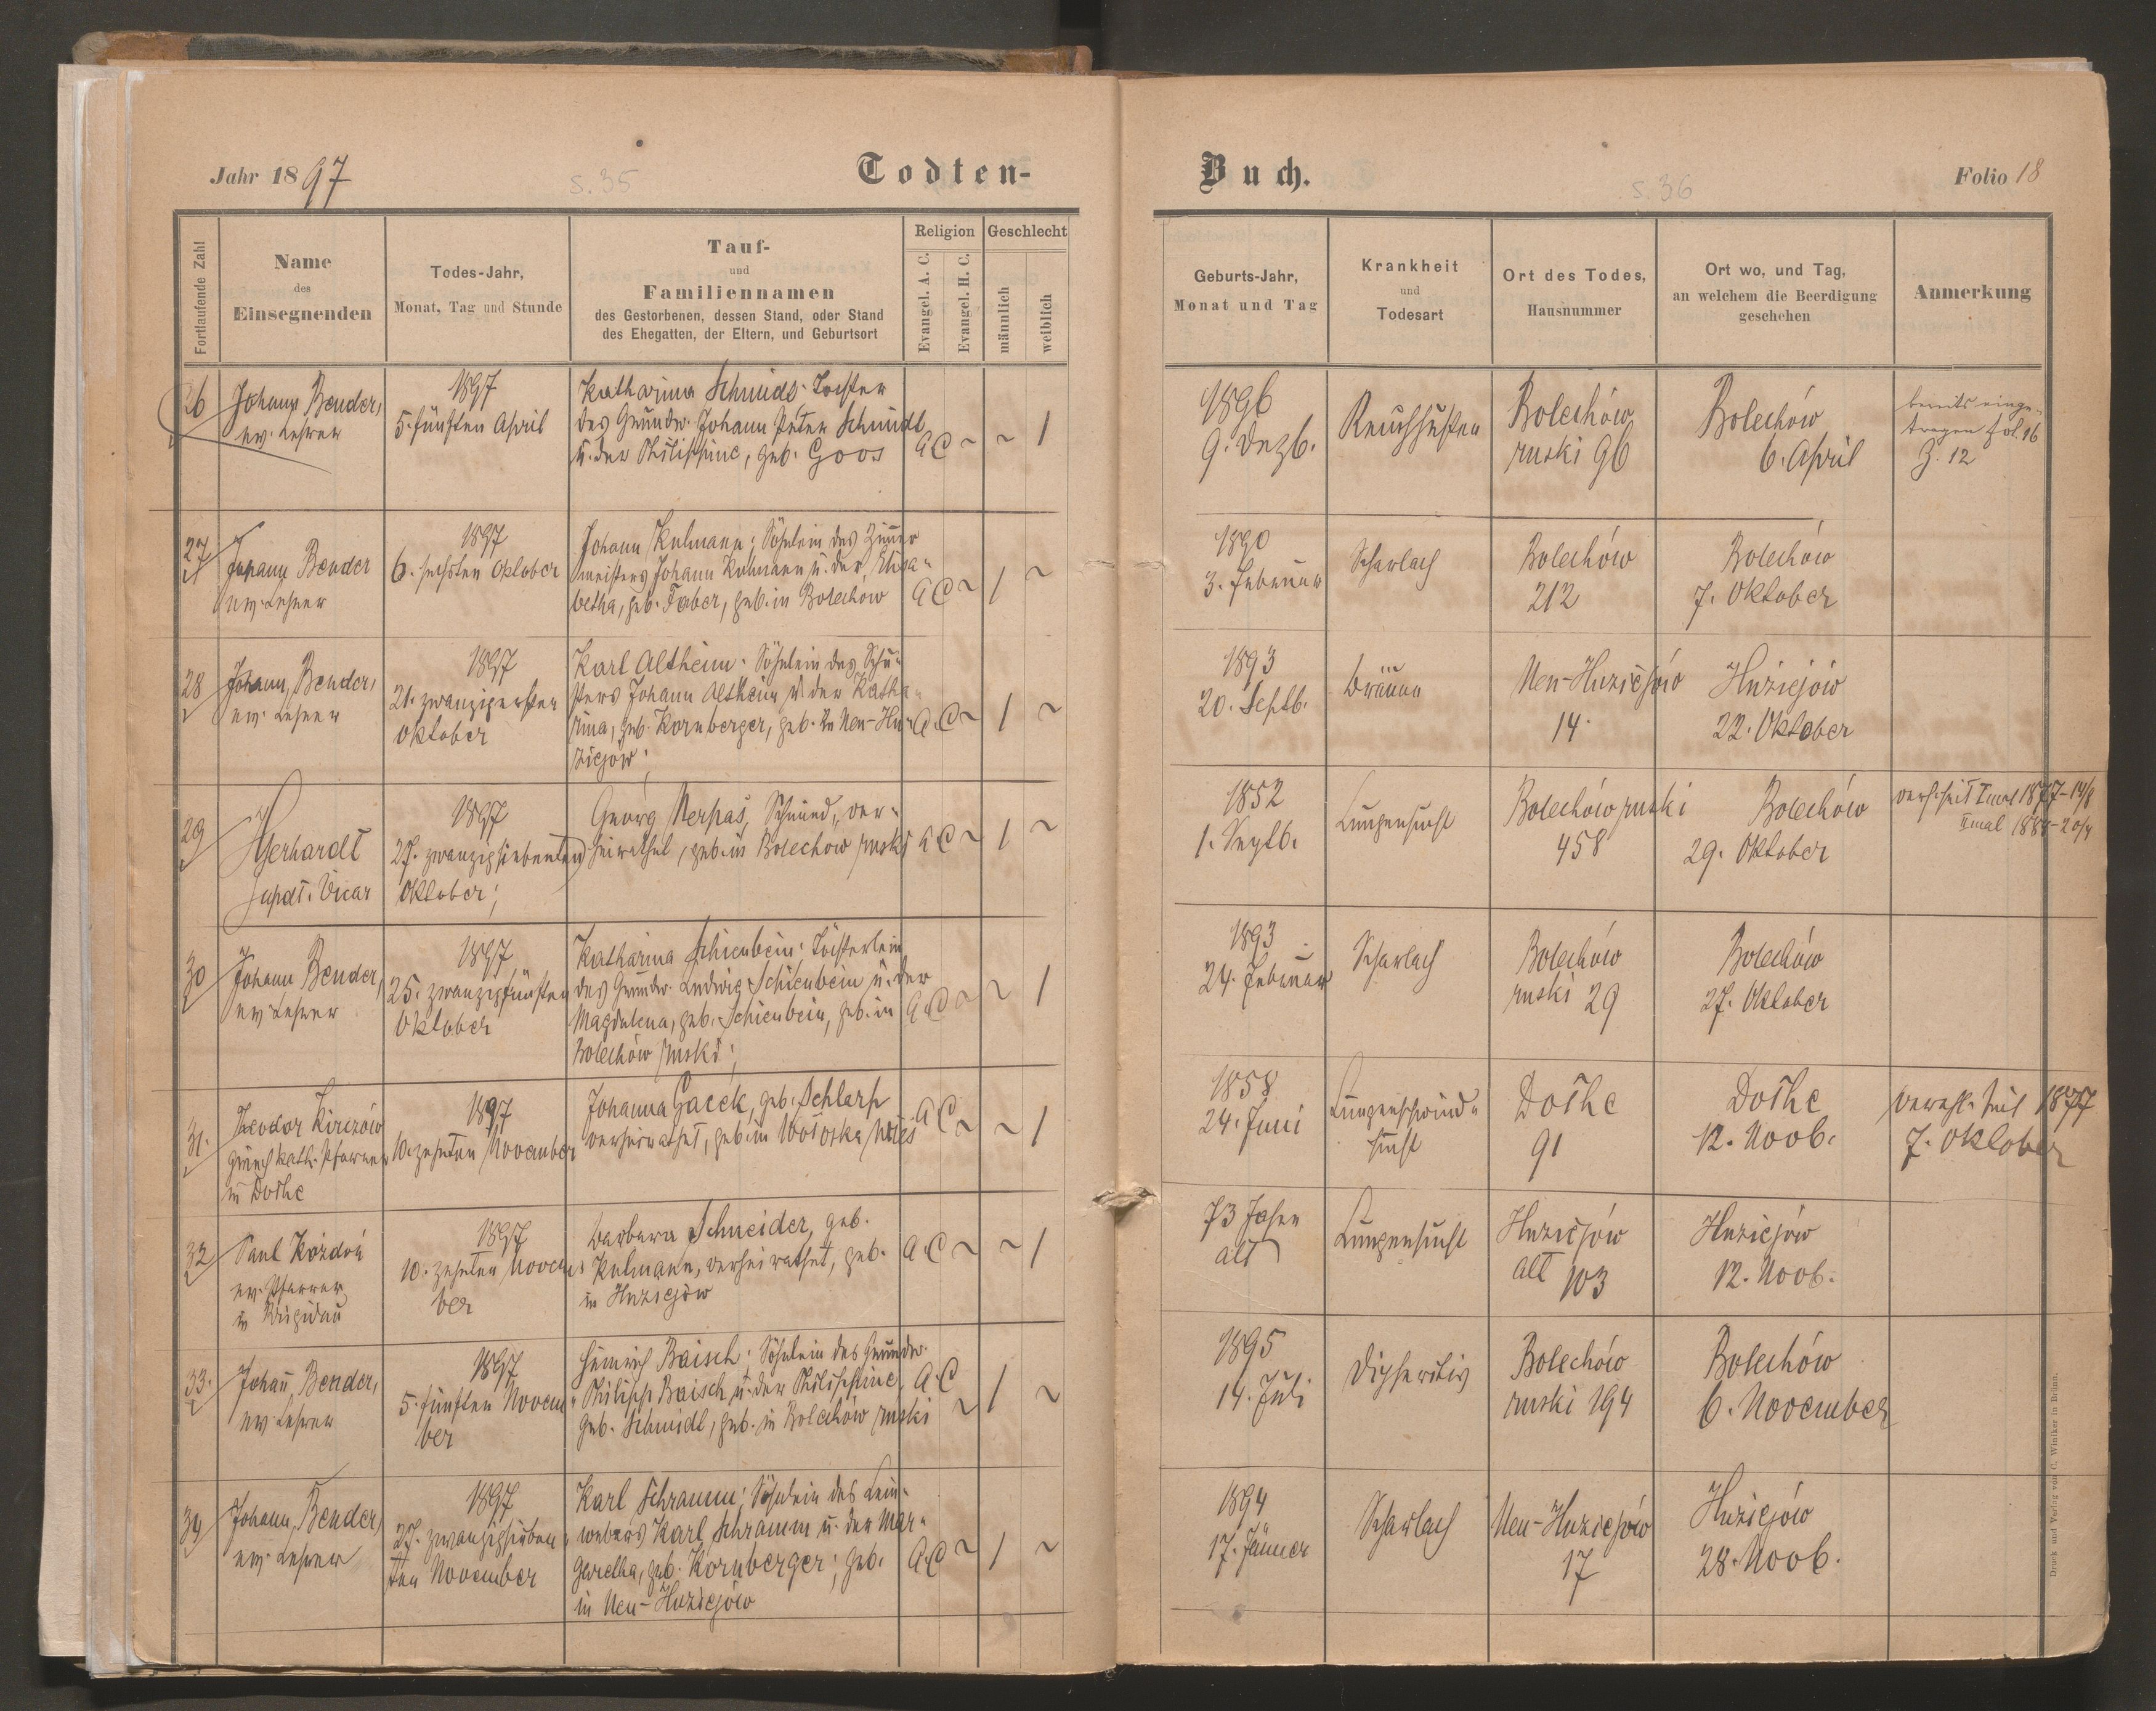 Jahr 1897
s. 35
Todten-
Fortlaufende Zahl
Name
des
Einsegnenden
Todes-Jahr,
Monat, Tag und Stunde
Tauf-
und
Familiennamen
des Gestorbenen, dessen Stand, oder Stand
des Ehegatten, der Eltern, und Geburtsort
Religion
Evangel. A. C.
Evangel. H. C.
Geschlecht
männlich
weiblich
26
Johann Bender,
ev. Lehrer
1897
5. fünften April
Katharina Schmidt; Tochter
des Grundw. Johann Peter Schmidt
u. der Philippine, geb. Goos
AC ~ ~ 1
27
Johann Bender
ev. Lehrer
1897
6. sechsten Oktober
Johann Kulmann; Söhnlein des Zimer
meisters Johann Kulmann u. der Elisa-
betha, geb. Faber, geb. in Bolechów
AC ~ 1 ~
28
Johann Bender,
ev. Lehrer
1897
21. zwanzigersten
Oktober
Karl Altheim; Söhnlein des Schu-
sters Johann Altheim u. der Katha-
rina, geb. Kornberger, geb. in Neu-Hu-
ziejów;
A.C ~ 1 ~
29
Gerhardt
Vicar
1897
27. zwanzigsiebenten
Oktober;
Georg Schmied, ver-
heirathet, geb. in Bolechow ruski
AC ~ 1 ~
30
Johann Bender,
ev. Lehrer
1897
25. zwanzigfünften
Oktober
Katharina Schienbein; Töchterlein
des Grundw. Ludwig Schienbein u. der
Magdalena, geb. Schienbein, geb. in
Bolechów ruski;
A.C ~ ~ 1
31.
Theodor
griech. kath. Pfarrer
in Dolhe
1897
10. zehnten November
Johanna Gacek, geb.
verheirathet, geb. in
AC ~ ~ 1
32
Paul Kożdoń
ev. Pfarrer
in Ugizdau
1897
10. zehnten Novem-
ber
Barbara Schneider, geb.
Kulmann, verheirathet, geb.
in Huziejów
A.C ~ ~ 1
33.
Johañ Bender,
ev. Lehrer
1897
5. fünften Novem-
ber
Heinrich Baisch; Söhnlein des Grundw.
Philipp Baisch u. der Philippine,
geb. Schmidt, geb. in Bolechów ruski
A.C ~ 1 ~
34
Johann Bender,
ev. Lehrer
1897
27. zwanzigsieben-
ten November
Karl Schramm; Söhnlein des Lein-
webers Karl Schramm u. der Mar-
garetha, geb. Kornberger; geb.
in Neu-Huziejów
A.C ~ 1 ~
Buch.
s. 36
Folio 18
Geburts-Jahr,
Monat und Tag
Krankheit
und
Todesart
Ort des Todes,
Hausnummer
Ort wo, und Tag,
an welchem die Beerdigung
geschehen
Anmerkung
1896
9. Dezb.
Keuchhusten
Bolechów
ruski 96
Bolechów
6. April
bereits einge-
tragen fol. 16
Z. 12
1890
3. Februar
Scharlach
Bolechów
212
Bolechów
7. Oktober
1893
20. Septb.
Bräune
Neu-Huziejów
14.
Huziejów
22. Oktober
1852
1. Septb.
Lungensucht
Bolechów ruski
458
Bolechów
29. Oktober
I mal 1877
II mal
1893
24. Februar
Scharlach
Bolechów
ruski 29
Bolechów
27. Oktober
1858
24. Juni
Lungenschwind-
sucht
Dolhe
91
Dolhe
12. Novb.
verehl. seit 1877
7. Oktober
73 Jahre
alt
Lungensucht
Huziejów
alt 103
Huziejów
12. Novb.
1895
14. Juli
Diphteritis
Bolechów
ruski 194
Bolechów
6. November
1894
17. Jänner
Scharlach
Neu-Huziejów
17
Huziejów
28. Novb.
Druck und Verlag von C. Winiker in Brünn.